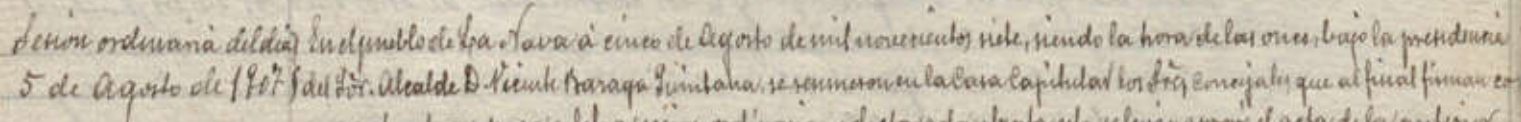 Sesión ordinaria del día) En el pueblo de La Nava á cinco de Agosto de mil novecientos siete, siendo la hora de las once, bajo la presidencia
5 de Agosto de 1907 } del Sór. Alcalde D. Vicente Baraga Quintana, se reunieron en la Casa Capitular los Srs. Concejales que al final firman con